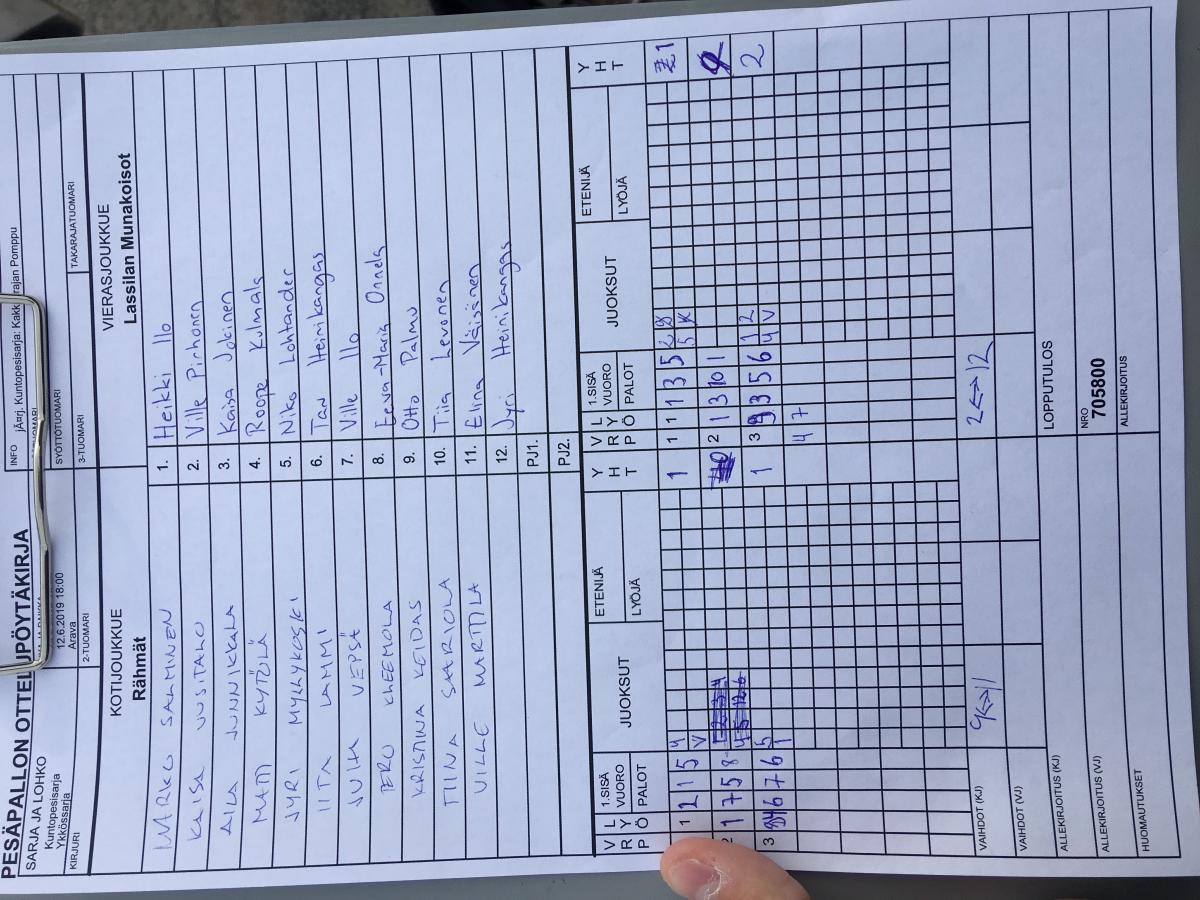 PESÄPALLON OTTELUPÖYTÄKIRJA
SARJA JA LOHKO
Kuntopesisarja
Ykkössarja
12.6.2019 18:00
Arava
INFO
JÄ¤rj. Kuntopesisarja: Kakk rajan Pomppu
KIRJURI
2-TUOMARI
SYÖTTÖTUOMARI
3-TUOMARI
TAKARAJATUOMARI
KOTIJOUKKUE
Rähmät
VIERASJOUKKUE
Lassilan Munakoisot
MARKO SALMINEN 1. Heikki Ilo
KAISA UUSITALO 2. Ville Pirhonen
AILA JUNNIKKALA 3. Kaisa Jokinen
MATTI KYTÖLÄ 4. Roope Kulmala
JYRI MYLLYKOSKI 5. Niko Lohtander
IITA LAMMI 6. Tan Heinikangas
JUHA VEPSÄ 7. Ville Ilo
PERO KHEEMOLA 8. Eeva-Maria Onnela
KRISTINA KEIDAS 9. Otto Palmu
TIINA SAARIOLA 10. Tiia Levonen
VILLE MARTTILA 11. Elina Väisänen
12. Jyri Heinikangas
PJ1.
PJ2.
V R P L Y Ö 1.SISÄ VUORO PALOT JUOKSUT ETENIJÄ LYÖJÄ Y H T
V R P L Y Ö 1.SISÄ VUORO PALOT JUOKSUT ETENIJÄ LYÖJÄ Y H T
1 2 1 5 4 V 1
1 1 1 3 5 5 K 1
2 1 7 5 8
2 1 3 10 1
3 4 6 7 6 5 1 1
3 3 5 6 1 4 2 V 2
4 7
VAIHDOT (KJ) 9<->11 2<->12
VAIHDOT (VJ)
ALLEKIRJOITUS (KJ)
LOPPUTULOS
ALLEKIRJOITUS (VJ)
NRO
705800
HUOMAUTUKSET
ALLEKIRJOITUS